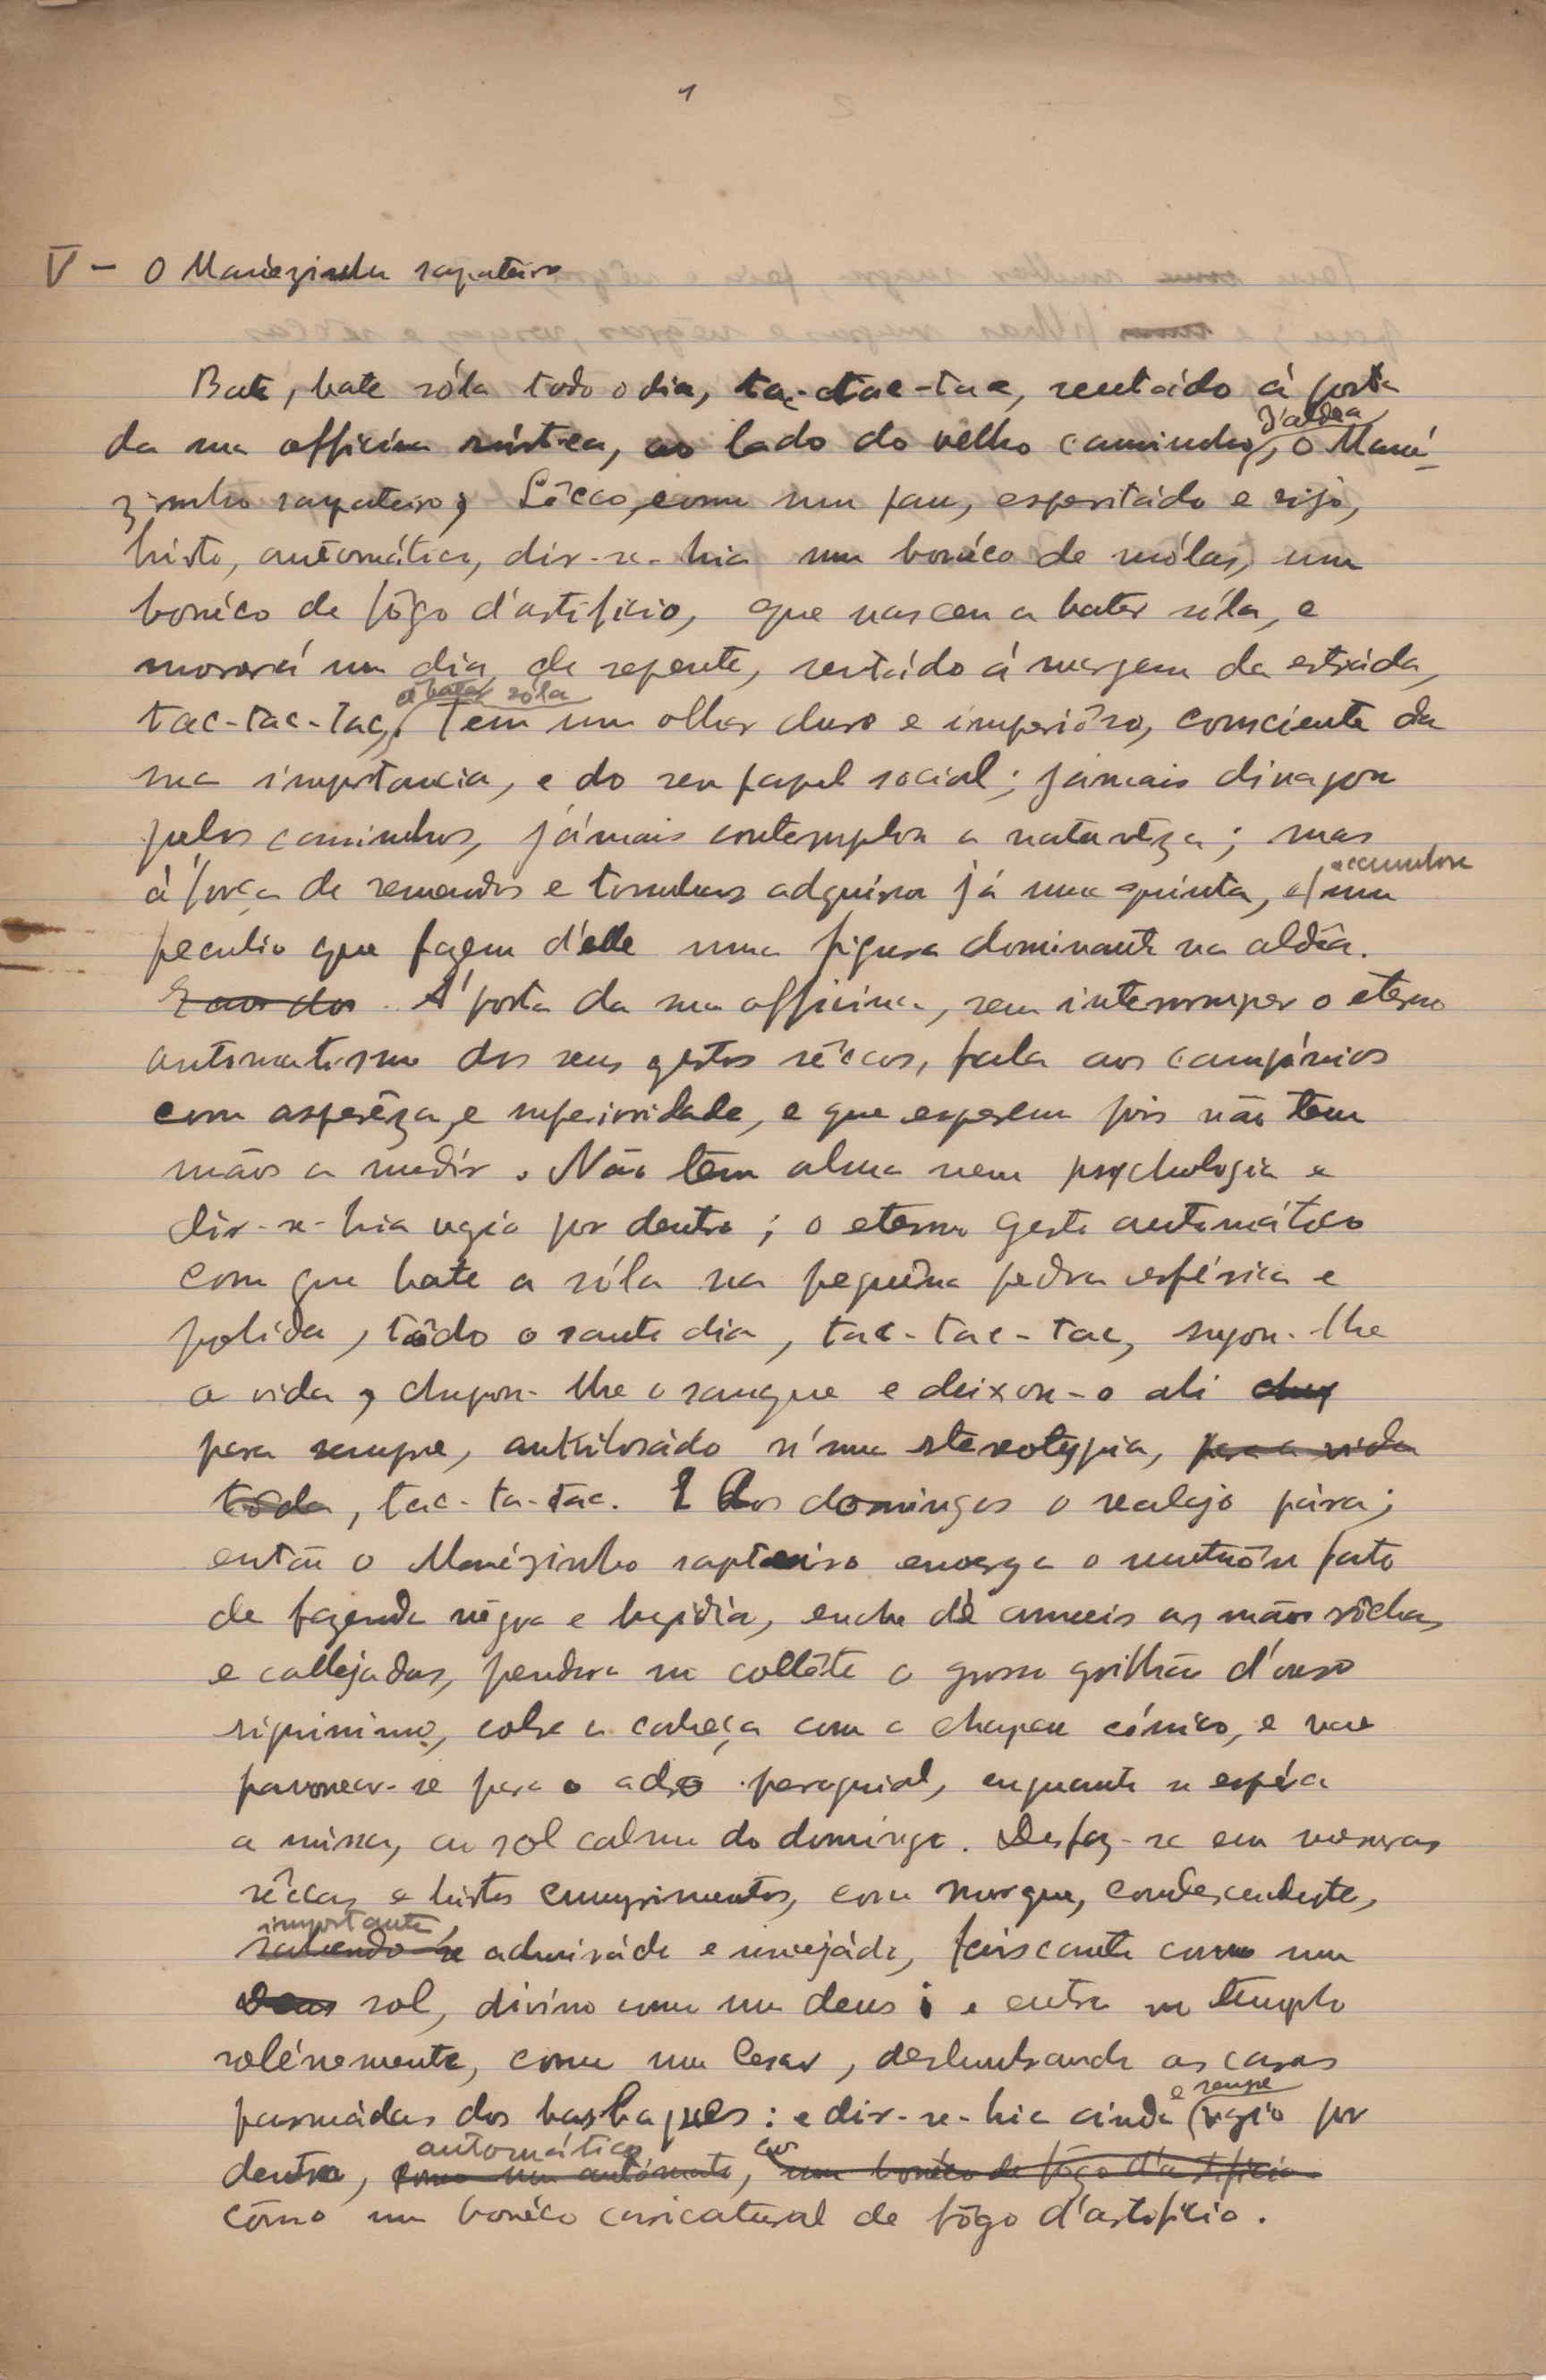 1
V - O Manèzinho sapateiro
Bate, bate sóla todo o dia, tac-tac-tac, sentádo á porta
da sua officina rústica, ao lado do velho caminho d'aldea, o Mané-
zinho sapateiro, Sêcco, como um pau, esperitádo e rijo,
hirto, automático, dir-se-hia um bonéco de mólas, um
bonéco de fôgo d'artificio, que nasceu a bater sóla, e
morrerá um dia, de repente, sentádo á margem da estráda,
tac-tac-tac, a bater sóla. Tem um olhar duro e imperiôso, consciente da
sua importancia, e do seu papel social; jámais divagou
pelos caminhos, jámais contemplou a naturêza; mas
á força de remendos e tombas adquiriu já uma quinta, e accumulou um
peculio que fazem d'elle uma figura dominante na aldêa.
E aos dos. Á porta da sua officina, sem interromper o eterno
automatismo dos seus gestos sêccos, fala aos campónios
com asperêza, e superioridade, e que esperem pois não tem
mãos a medir. Não tem alma nem psychologia e
dir-se-hia vazio por dentro; o eterno gesto automático
com que bate a sóla na pequêna pedra esférica e
polida, tôdo o santo dia, tac-tac-tac, sugou-lhe
a vida, chupou-lhe o sangue e deixou-o ali chup
para sempre, ankilosádo n'uma stereotypia, para a vida
toda, tac-ta-tac. E Aos domingos o realejo pára;
então o Manézinho sapateiro enverga o fato
de fazenda nêgra e luzidia, enche de anneis as mãos sêccas
e callejadas, pendura no collête o grosso grilhão d'ouro
riquissimo, cobre a cabeça com o chapeu cónico, e vae
pavonear-se para o adro paroquial, enquanto se espéra
a missa, ao sol calmo do domingo. Desfaz-se em mesuras
sêccas e hirtos cumprimentos, com morgue, condescendente,
importante, sabendo-se admirádo e invejádo, faiscante como um
Deus sol, divino como um deus; e entra no templo
solénemente, como um Cesar, deslumbrando as caras
pasmádas dos basbaques: e dir-se-hia ainda e sempre vazio por
dentro, automático como um autómato, um bonéco de fôgo d'artificio
cômo um bonéco caricatural de fôgo d'artificio.